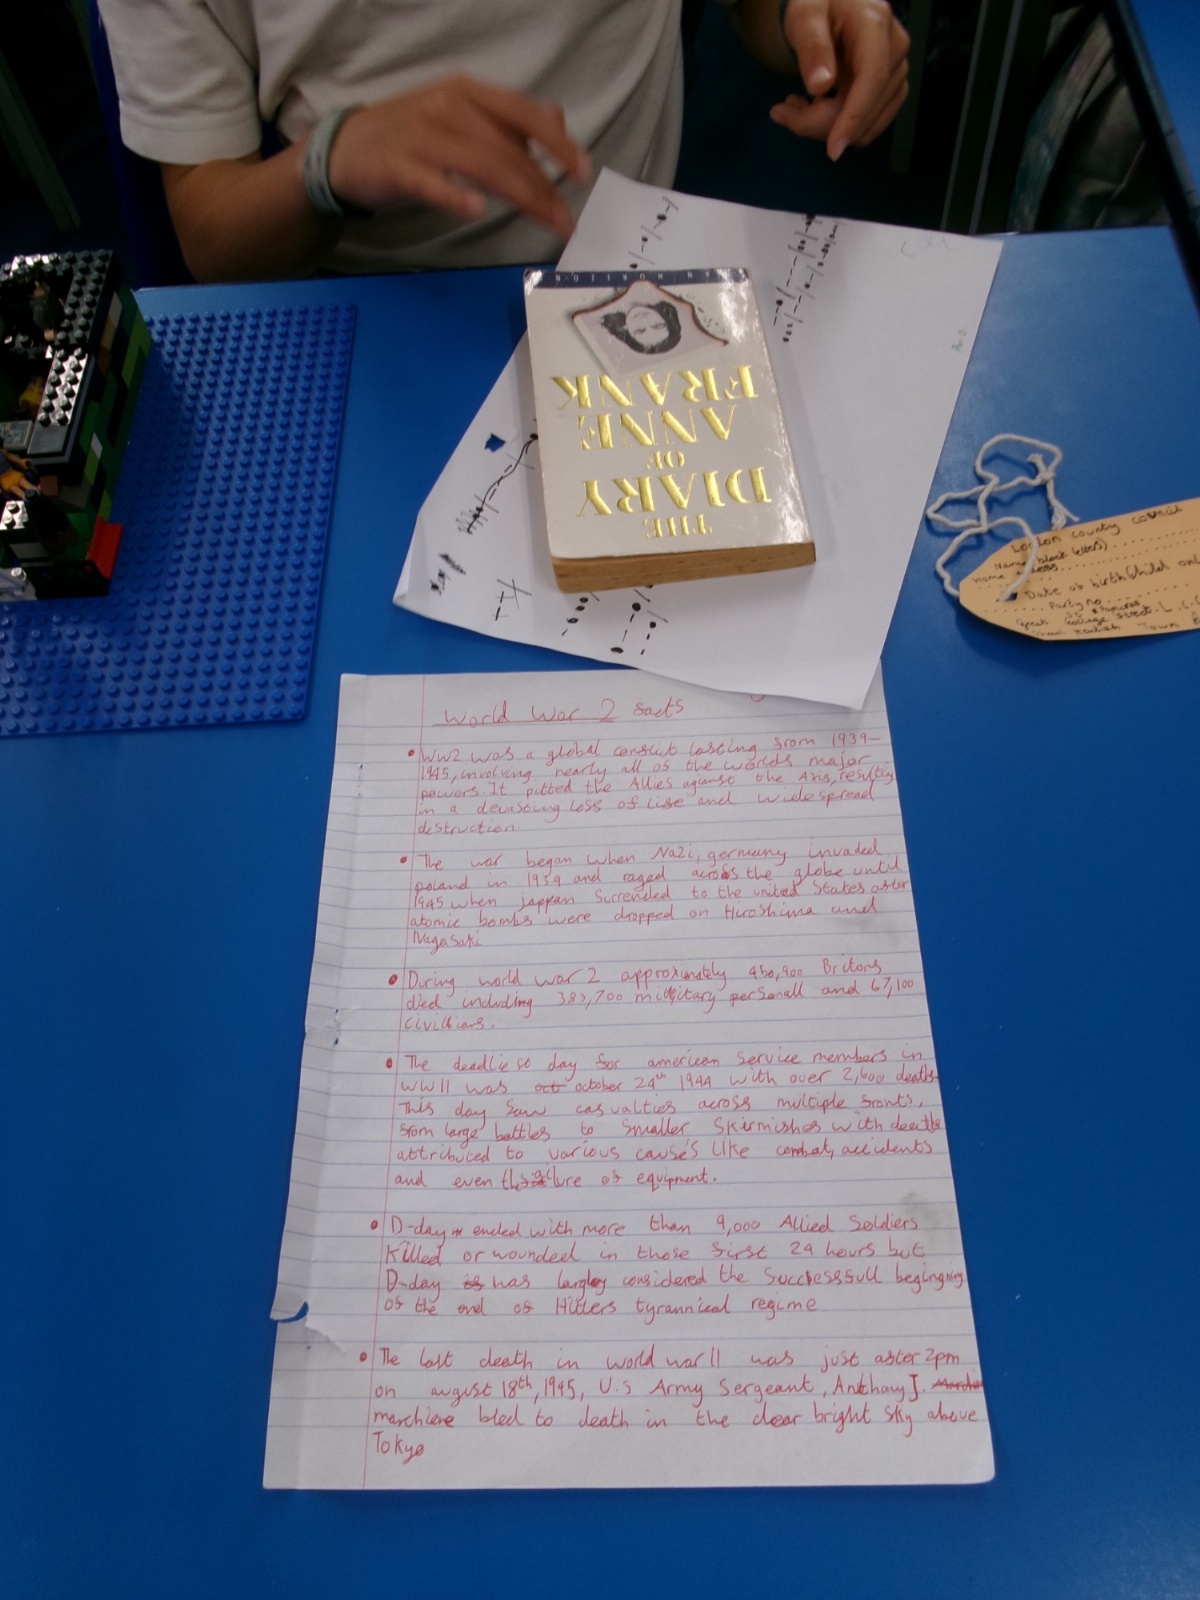 THE
DIARY
OF
ANNE
FRANK
London county council
Name (block letters)
Home
Date of birth (child only)
Party no
Great College Street L.
Town
World War 2 facts
• WW2 was a global conflict lasting from 1939-
1945, involving nearly all of the worlds major
powers. It pitted the Allies against the Axis, resulting
in a devasting loss of life and widespread
destruction.
• The war began when Nazi, germany invaded
poland in 1939 and raged across the globe until
1945 when jappan Surrended to the united States after
atomic bombs were dropped on Hiroshima and
Nagasaki
• During world war 2 approximately 450,900 Britons
died including 383,700 military personall and 67,100
civillians.
• The deadliest day for american service members in
WWII was oct october 24th 1944 with over 2,600 deaths.
This day saw casualties across multiple fronts,
from large battles to smaller skirmishes with deaths
attributed to various cause's like combat, accidents
and even of equipment.
• D-day ended with more than 9,000 Allied Soldiers
Killed or wounded in those first 24 hours but
D-day is was largley considered the Successfull beginging
of the end of Hitlers tyrannical regime
• The last death in world war II was just after 2pm
on august 18th, 1945, U.S Army Sergeant, Anthony J. Marchio
marchione bled to death in the clear bright sky above
Tokyo